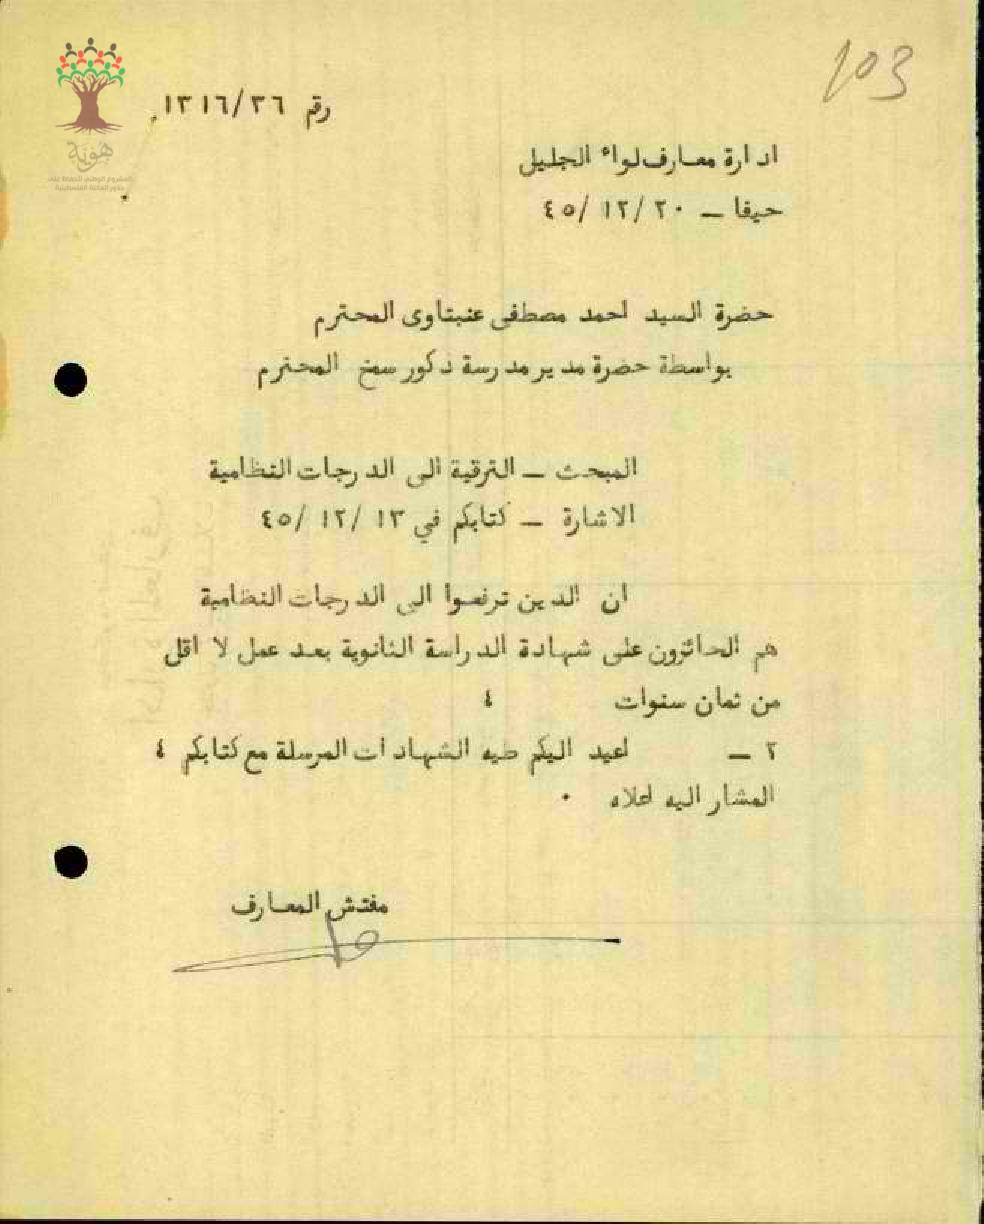 103
رقم ١٣١٦/٣٦
هوية
المشروع الوطني للحفاظ على
جذور العائلة الفلسطينية
ادارة معارف لواء الجليل
حيفا – ٢٠ /١٢ /٤٥
حضرة السيد احمد مصطفى عنبتاوى المحترم
بواسطة حضرة مدير مدرسة ذكور سمخ المحترم
المبحث – الترقية الى الدرجات النظامية
الاشارة – كتابكم في ١٣ /١٢ /٤٥
ان الذين ترفعوا الى الدرجات النظامية
هم الحائزون على شهادة الدراسة الثانوية بعد عمل لا اقل
من ثمان سنوات ٤
٢ – اعيد اليكم طيه الشهادات المرسلة مع كتابكم ٤
المشار اليه اعلاه ٠
مفتش المعارف